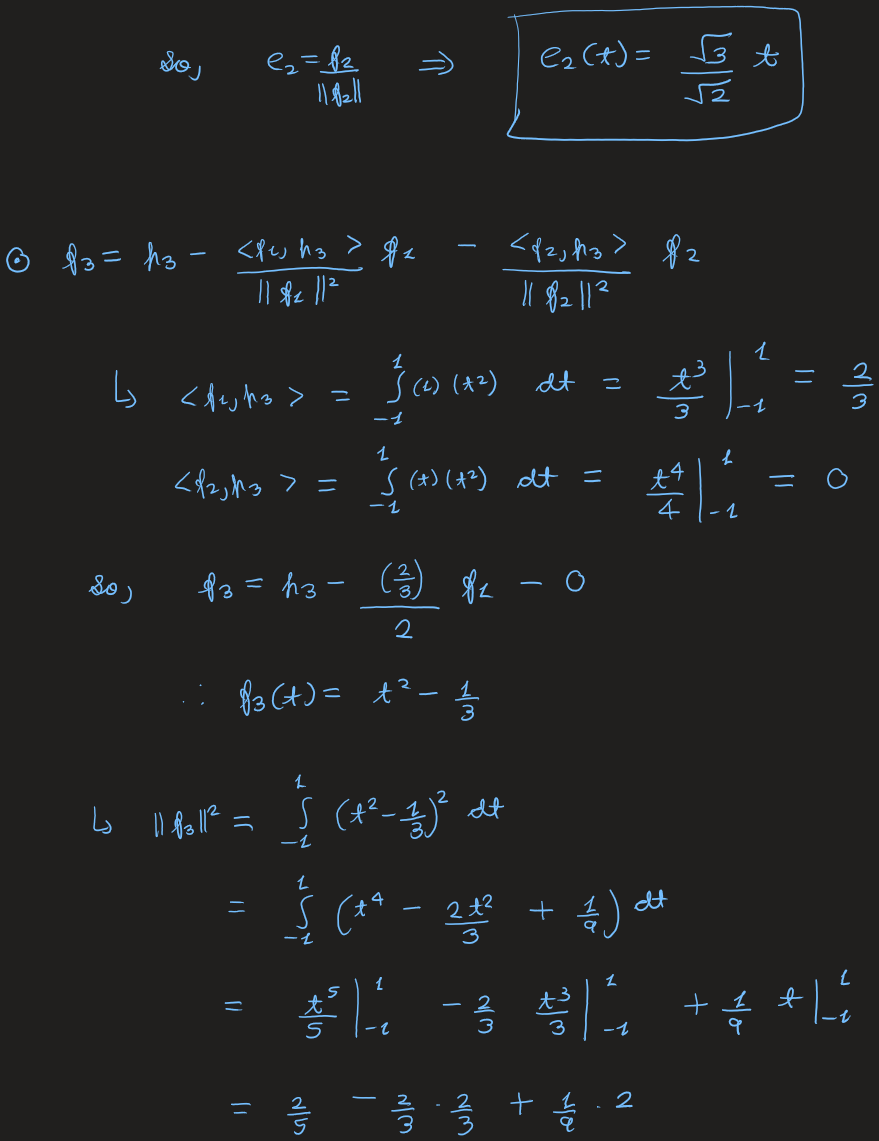 so, e₂ = f₂/||f₂|| ⇒ e₂(t) = √3/√2 t
⊙ f₃ = h₃ - <f₁, h₃>/||f₁||² f₁ - <f₂, h₃>/||f₂||² f₂
↳ <f₁, h₃> = ∫₋₁¹ (1) (t²) dt = t³/3 |₋₁¹ = 2/3
<f₂, h₃> = ∫₋₁¹ (t) (t²) dt = t⁴/4 |₋₁¹ = 0
so, f₃ = h₃ - (2/3)/2 f₁ - 0
∴ f₃(t) = t² - 1/3
↳ ||f₃||² = ∫₋₁¹ (t² - 1/3)² dt
= ∫₋₁¹ (t⁴ - 2t²/3 + 1/9) dt
= t⁵/5 |₋₁¹ - 2/3 t³/3 |₋₁¹ + 1/9 t |₋₁¹
= 2/5 - 2/3 · 2/3 + 1/9 · 2